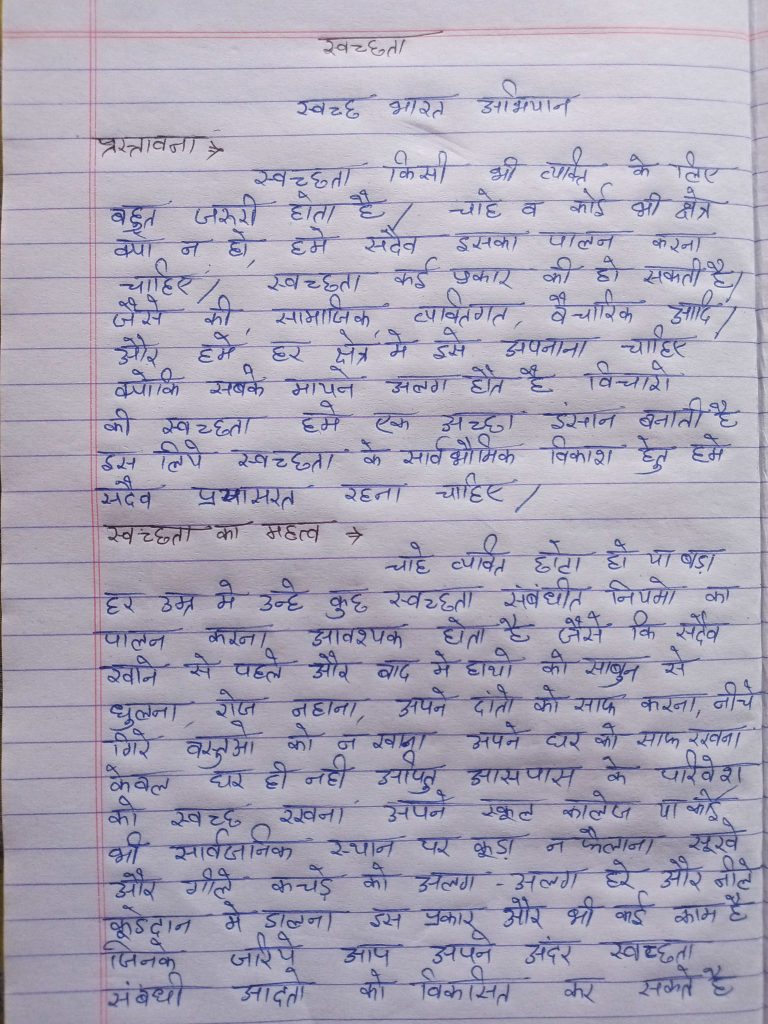 स्वच्छता
स्वच्छ भारत अभियान
प्रस्तावना →
स्वच्छता किसी भी व्यक्ति के लिए
बहुत जरुरी होता है / चाहे व कोई भी क्षेत्र
क्यो न हो, हमे सदैव इसका पालन करना
चाहिए / स्वच्छता कई प्रकार की हो सकती है /
जैसे की, सामाजिक, व्यक्तिगत, वैचारिक आदि /
और हमे हर क्षेत्र मे इसे अपनाना चाहिए
क्योकि सबके मायने अलग होते है विचारो
की स्वच्छता हमे एक अच्छा इंसान बनाती है
इस लिये स्वच्छता के सार्वभौमिक विकाश हेतु हमे
सदैव प्रयासरत रहना चाहिए /
स्वच्छता का महत्व →
चाहे व्यक्ति छोटा हो या बड़ा
हर उम्र मे उन्हे कुछ स्वच्छता संबंधीत नियमो का
पालन करना आवश्यक होता है जैसे कि सदैव
खाने से पहले और बाद मे हाथो को साबुन से
धुलना, रोज नहाना, अपने दांतो को साफ करना, नीचे
गिरे वस्तुओ को न खाना अपने घर को साफ रखना
केवल घर ही नही अपितु आसपास के परिवेश
को स्वच्छ रखना अपने स्कूल कालेज या कोई
भी सार्वजनिक स्थान पर कूड़ा न फैलाना सूखे
और गीले कचड़े को अलग - अलग हरे और नीले
कूडेदान मे डालना इस प्रकार और भी कई काम है
जिनके जरिये आप अपने अंदर स्वच्छता
संबंधी आदतो को विकसित कर सकते है